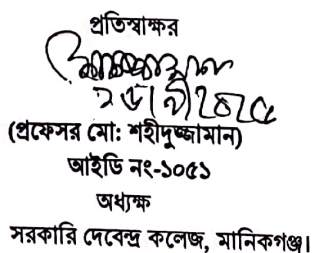 প্রতিস্বাক্ষর
(প্রফেসর মো: শহীদুজ্জামান)
আইডি নং-১০৫১
অধ্যক্ষ
সরকারি দেবেন্দ্র কলেজ, মানিকগঞ্জ।